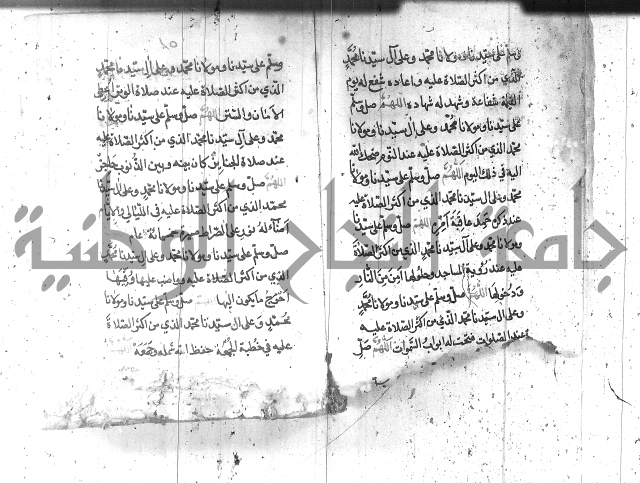 وسلم على سيدنا ومولانا محمد وعلى آل سيدنا محمد
الذي من اكثر الصلاة عليه واعاده شفع له يوم
القيمة شفاعة وشهد له شهاده اللهم صل وسلم
على سيدنا ومولانا محمد وعلى آل سيدنا ومولانا
محمد الذي من اكثر الصلاة عليه عند النوم ضحك الله
اليه في ذلك اليوم اللهم صل وسلم على سيدنا ومولانا
محمد وعلى آل سيدنا محمد الذي من اكثر الصلاة عليه
عند اللهم صل وسلم على سيدنا
ومولانا محمد وعلى آل سيدنا محمد الذي من اكثر الصلاة
عليه عند رؤية المساجد ودخولها امن من النار
ودخولها اللهم صل وسلم على سيدنا ومولانا محمد
وعلى ال سيدنا محمد الذي من اكثر الصلاة عليه
عند الصلوات فتحت له ابواب السموات اللهم صل
١٥
وسلم على سيدنا ومولانا محمد وعلى آل سيدنا محمد
الذي من اكثر الصلاة عليه عند صلاة الوتر
الامان و اللهم صل وسلم على سيدنا ومولانا
محمد وعلى آل سيدنا محمد الذي من اكثر الصلاة عليه
عند صلاة الجنايز كان بينه وبين الذنوب
اللهم صل وسلم على سيدنا ومولانا محمد وعلى آل سيدنا
محمد الذي من اكثر الصلاة عليه في الليالي والايام
اضآ له نور على الصراط
صل وسلم على سيدنا ومولانا محمد وعلى آل سيدنا محمد
الذي من اكثر الصلاة عليه وواضب عليها
ما يكون اليها اللهم صل وسلم على سيدنا ومولانا
محمد وعلى ال سيدنا محمد الذي من اكثر الصلاة
عليه في خطبة الجمعة حفظ الله
جامعة النجاح الوطنية